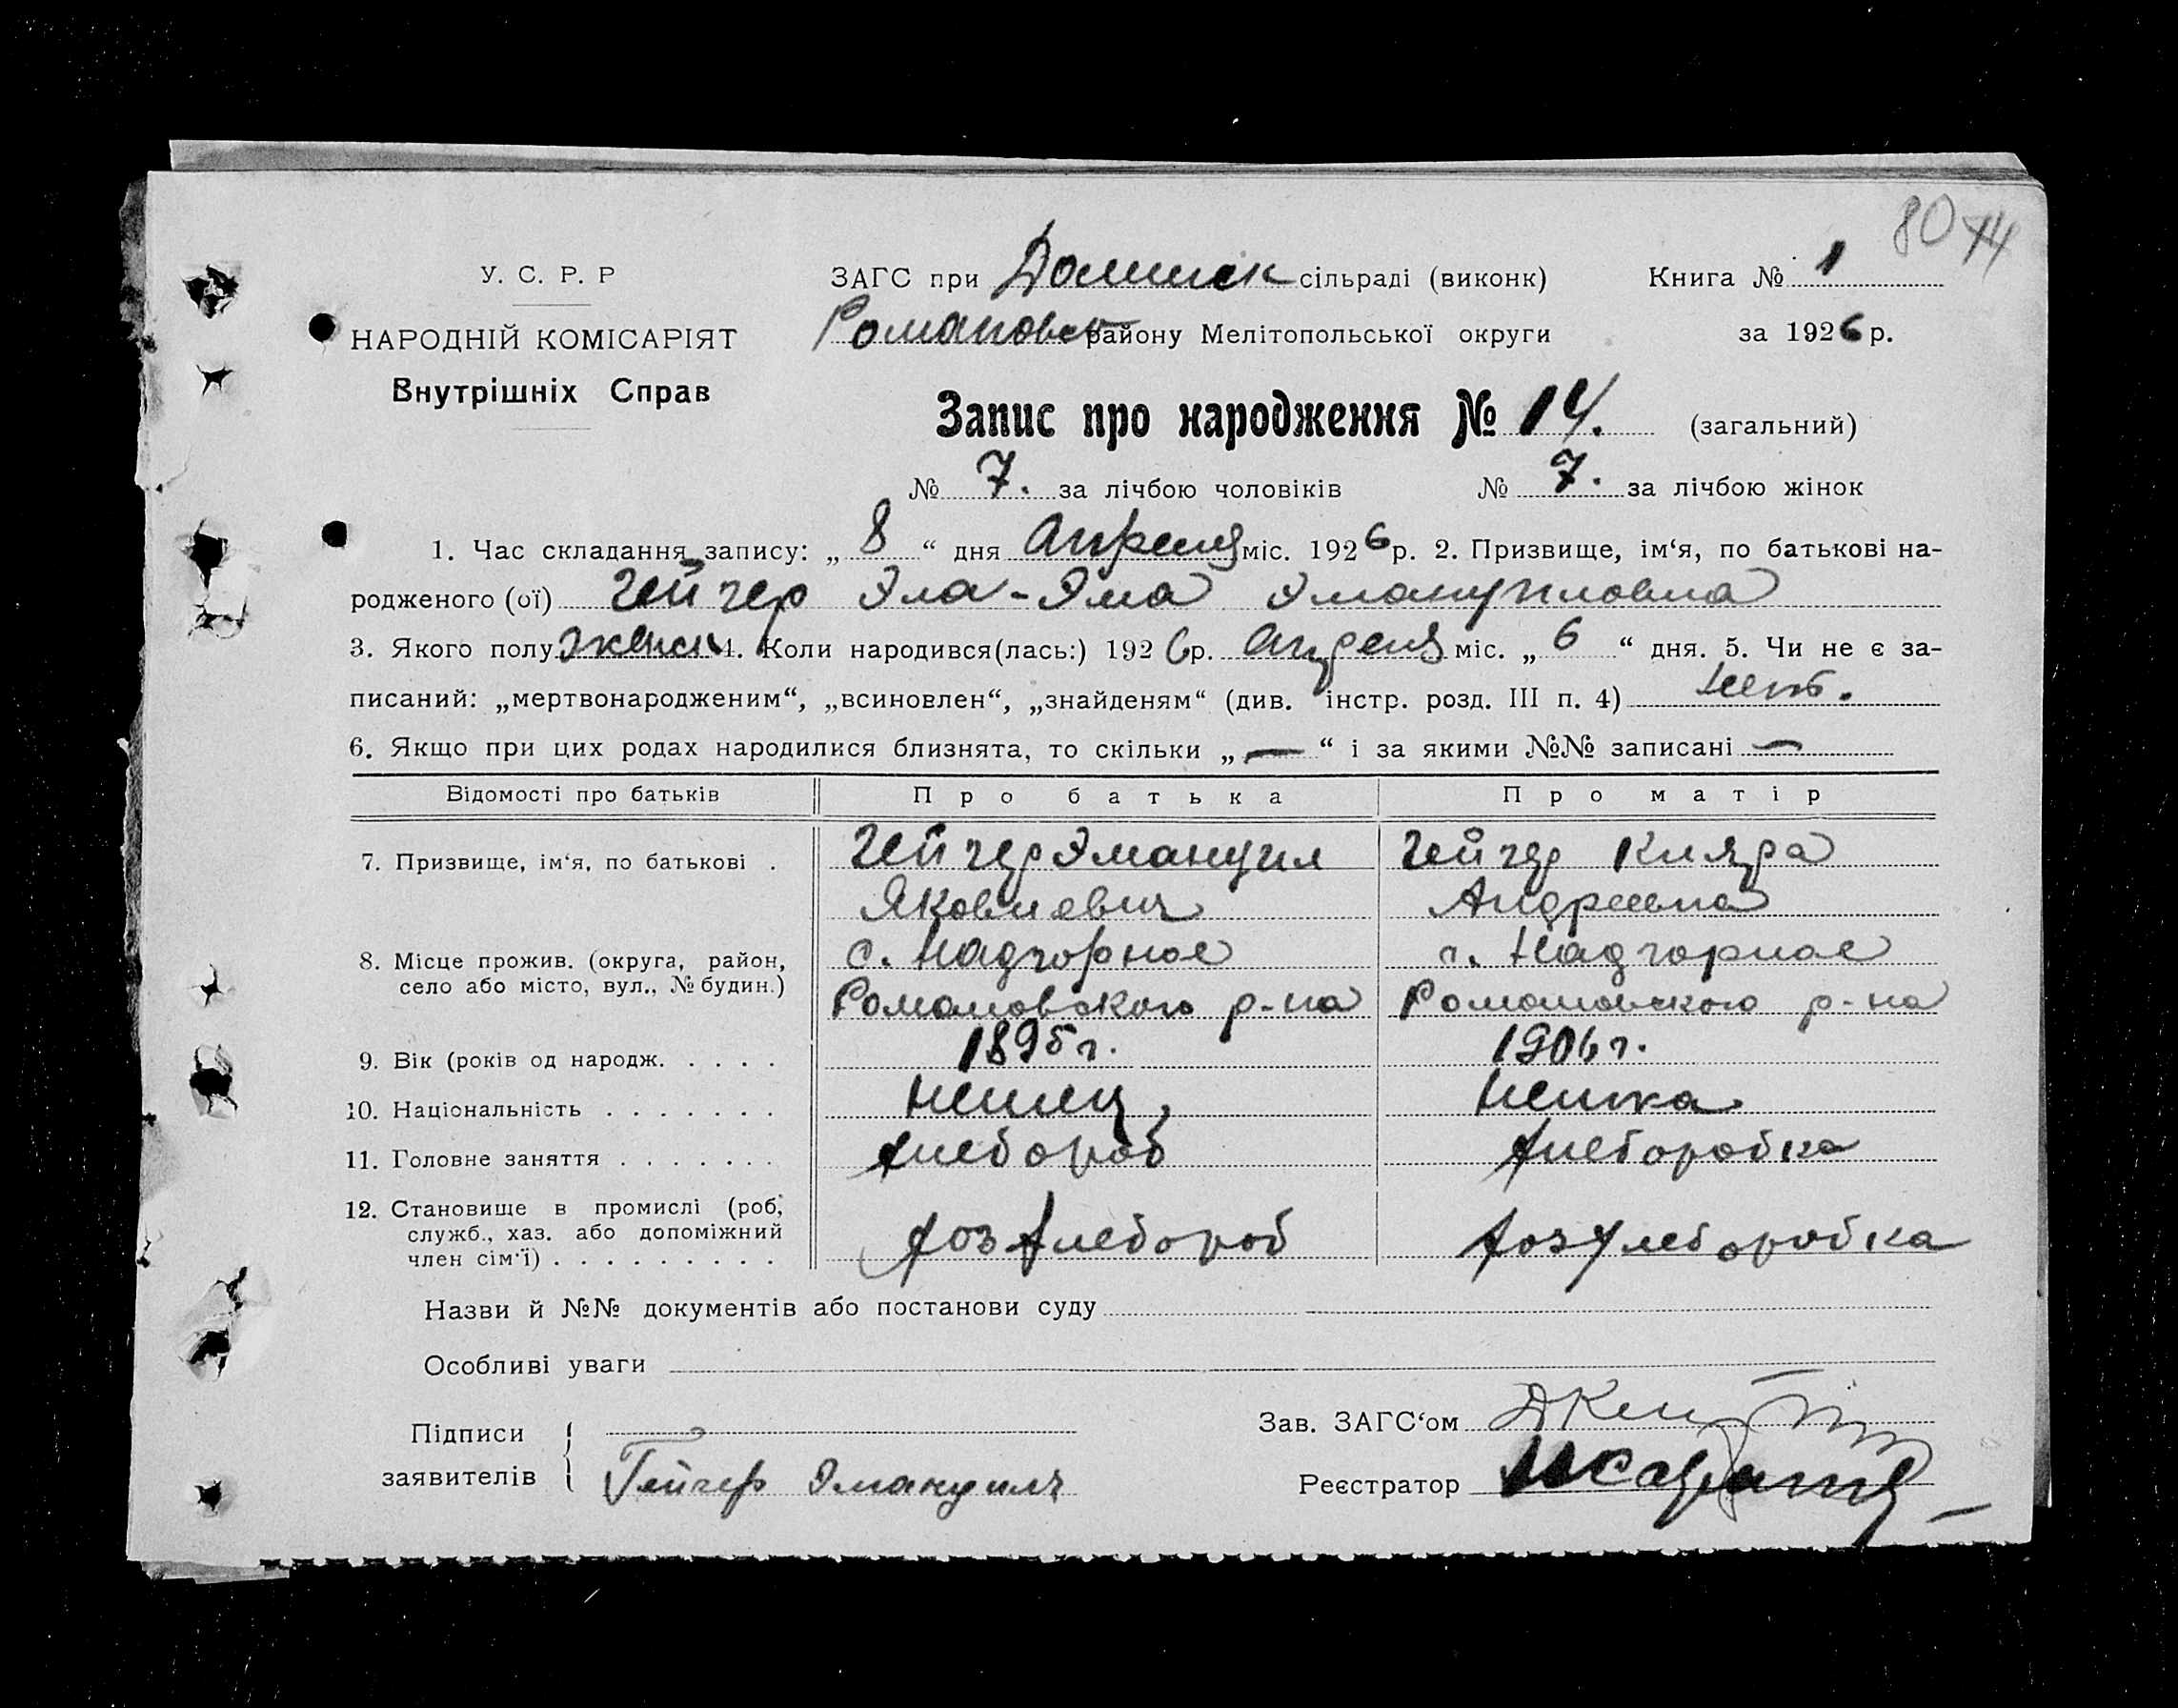 80 74
У. С. Р. Р
НАРОДНІЙ КОМІСАРІЯТ
Внутрішніх Справ
ЗАГС при Долинск сільраді (виконк) Книга № 1
Романовск району Мелітопольської округи за 1926 р.
Запис про народження № 14. (загальний)
№ 7. за лічбою чоловіків № 7. за лічбою жінок
1. Час складання запису: „ 8 “ дня Апреля міс. 1926 р. 2. Призвище, ім‘я, по батькові на-
родженого (ої) Гейгер Эла-Эма Эмануиловна
3. Якого полу женск 4. Коли народився(лась:) 1926 р. Апреля міс. „ 6 “ дня. 5. Чи не є за-
писаний: „мертвонародженим“, „всиновлен“, „знайденям“ (див. інстр. розд. III п. 4) нет.
6. Якщо при цих родах народилися близнята, то скільки „ — “ і за якими №№ записані —
Відомості про батьків Про батька Про матір
7. Призвище, ім‘я, по батькові . Гейгер Эмануил Гейгер Кляра
Яковлевич Андреевна
8. Місце прожив. (округа, район, с. Надгорное с. Надгорное
село або місто, вул., № будин.) Романовского р-на Романовского р-на
9. Вік (років од народж. . . . . 1895 г. 1906 г.
10. Національність . . . . . . . немец немка
11. Головне заняття . . . . . . . хлебороб хлеборобка
12. Становище в промислі (роб,
служб., хаз. або допоміжний хоз хлебороб хоз хлеборобка
член сім‘ї) . . . . . . . . .
Назви й №№ документів або постанови суду
Особливі уваги
Підписи
заявителів Гейгер Эмануилъ
Зав. ЗАГС‘ом
Реєстратор